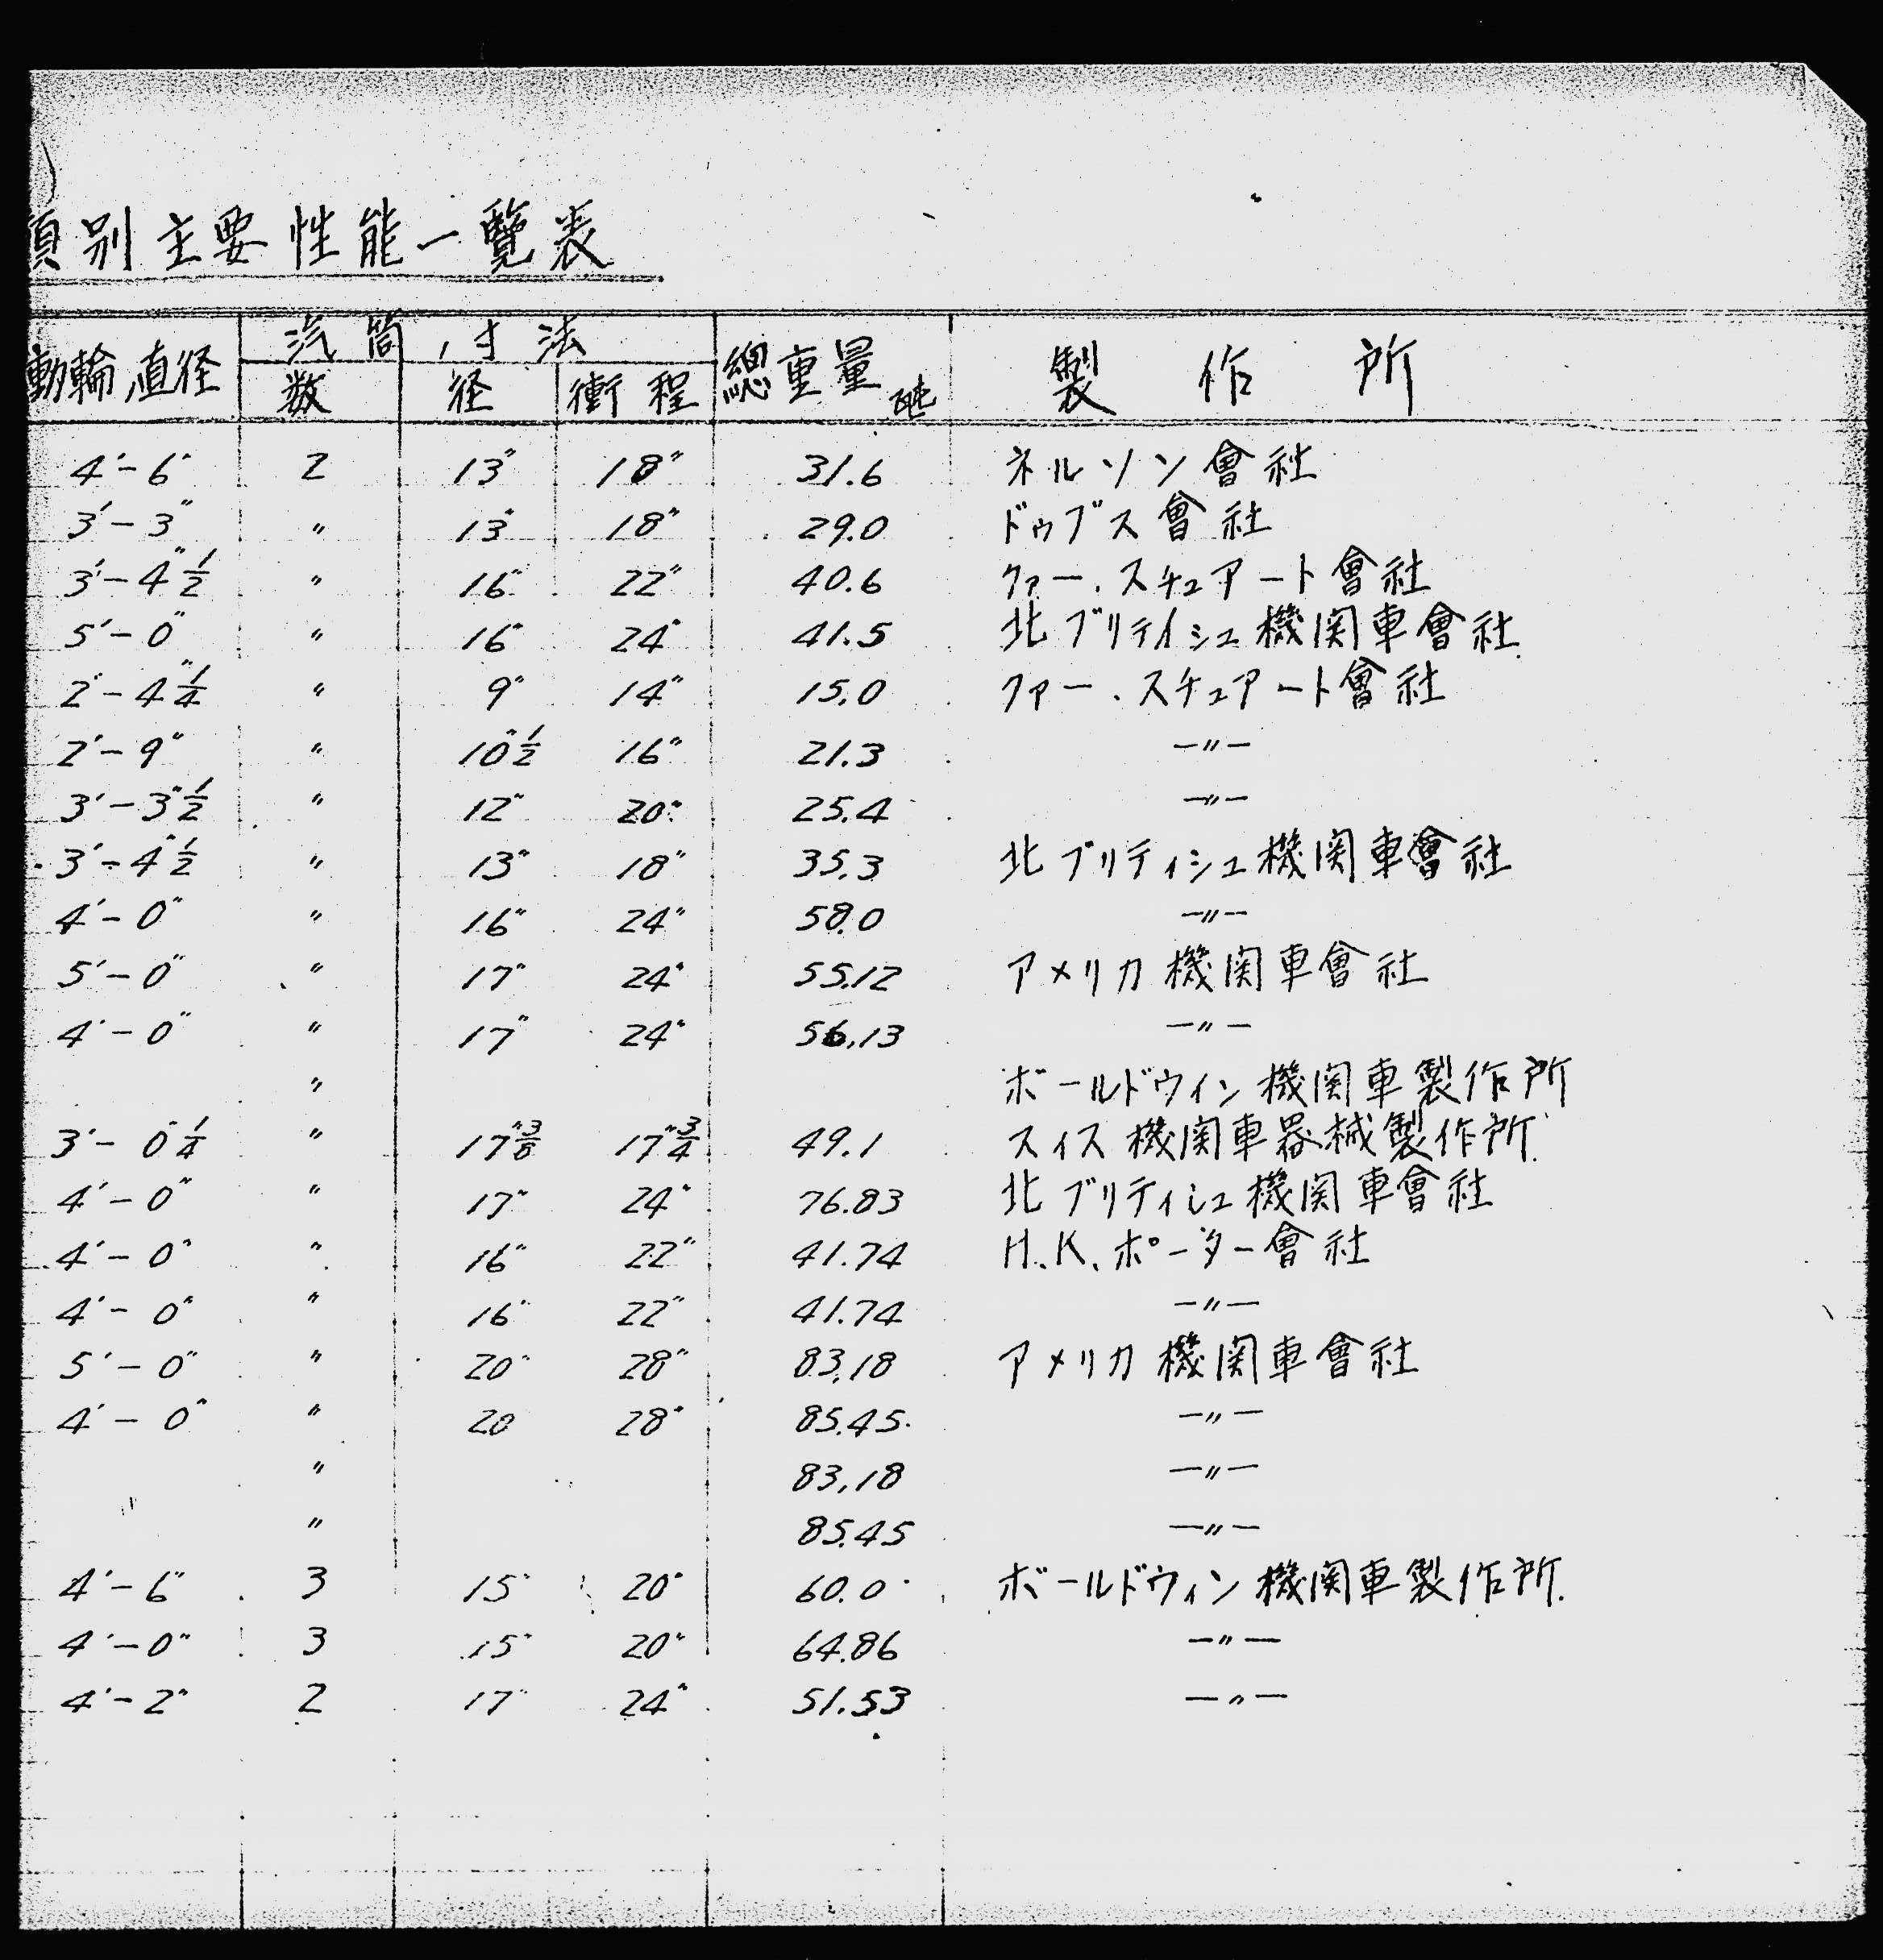 類別主要性能一覧表
動輪直径 汽筒寸法 總重量 瓲 製作所
数 径 衝程
4'-6" 2 13" 18" 31.6 ネルソン會社
3'-3" 〃 13" 18" 29.0 ドゥブス會社
3'-4"1/2 〃 16" 22" 40.6 クァー.スチュアート會社
5'-0" 〃 16" 24" 41.5 北ブリティシュ機関車會社
2'-4"1/4 〃 9" 14" 15.0 クァー.スチュアート會社
2'-9" 〃 10"1/2 16" 21.3 —〃—
3'-3"1/2 〃 12" 20" 25.4 —〃—
3'-4"1/2 〃 13" 18" 35.3 北ブリティシュ機関車會社
4'-0" 〃 16" 24" 58.0 —〃—
5'-0" 〃 17" 24" 55.12 アメリカ機関車會社
4'-0" 〃 17" 24" 56.13 —〃—
〃 ボールドウィン機関車製作所
3'-0"1/4 〃 17"3/8 17"3/4 49.1 スイス機関車器械製作所
4'-0" 〃 17" 24" 76.83 北ブリティシュ機関車會社
4'-0" 〃 16" 22" 41.74 H.K.ポーター會社
4'-0" 〃 16" 22" 41.74 —〃—
5'-0" 〃 20" 28" 83.18 アメリカ機関車會社
4'-0" 〃 20 28" 85.45 —〃—
〃 83.18 —〃—
〃 85.45 —〃—
4'-6" 3 15" 20" 60.0 ボールドウィン機関車製作所
4'-0" 3 15" 20" 64.86 —〃—
4'-2" 2 17" 24" 51.53 —〃—